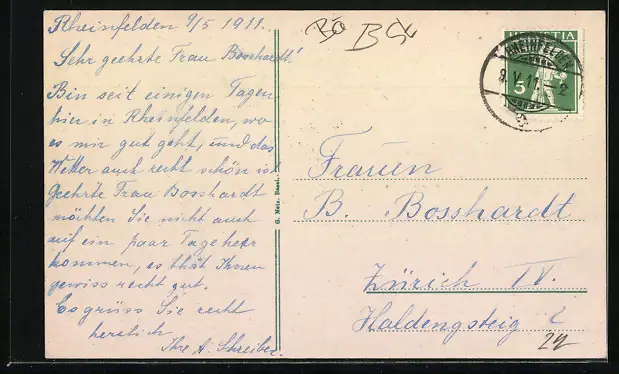 Rheinfelden 9/5 1911.
Sehr geehrte Frau Bosshardt!
Bin seit einigen Tagen
hier in Rheinfelden, wo
es mir gut geht, und das
Wetter auch recht schön ist
Geehrte Frau Bosshardt
möchten Sie nicht auch
auf ein paar Tage hehr
kommen, es thät Ihnen
gewiss recht gut.
Es grüss Sie recht
herzlich
Ihre A. Schreiber.
G. Metz, Basel.
HELVETIA
5
RHEINFELDEN
9.V.11.-2
Frauen
B. Bosshardt
Zürich IV.
Haldengsteig 2